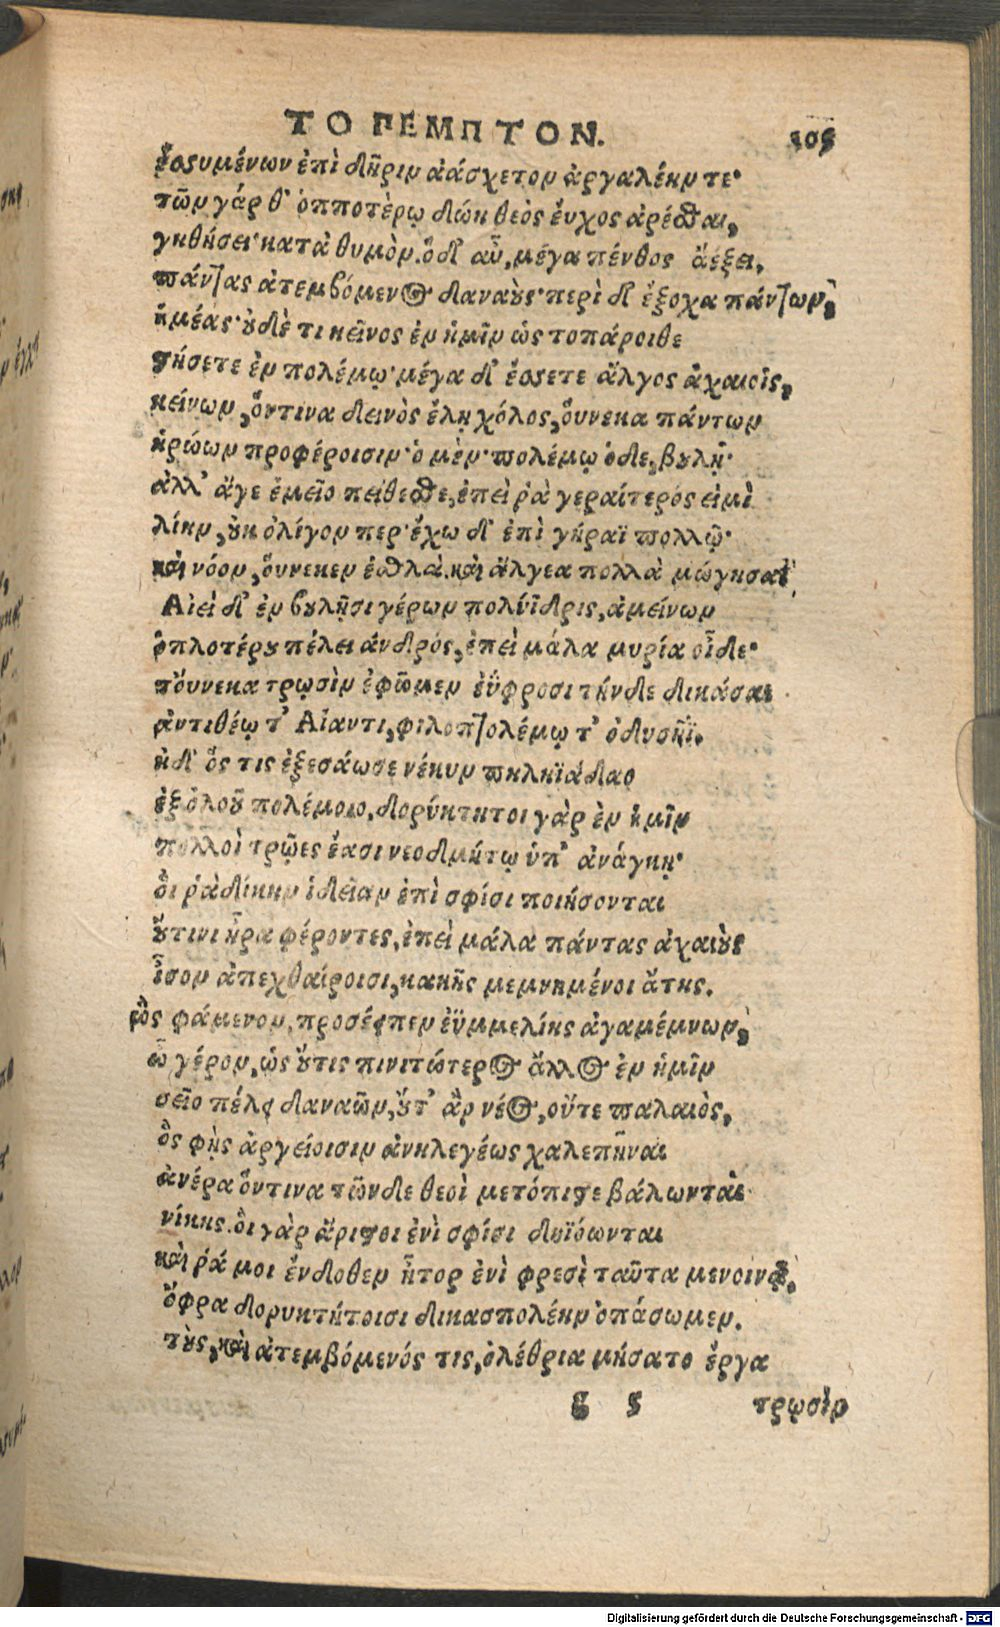 ΤΟ ΠΕΜΠΤΟΝ. 105
ἐσσυμένων ἐπὶ δῆριν ἀάσχετον ἀργαλέην τε·
τῶν γάρ θ' ὁπποτέρῳ δώη θεὸς εὖχος ἀρέσθαι,
γηθήσει κατὰ θυμὸν. ὅδ' αὖ, μέγα πένθος ἀέξει,
πάντας ἀτεμβόμενος δαναούς· περὶ δ' ἔξοχα πάντων,
ἡμέας· οὐδὲ τι κεῖνος ἐν ἡμῖν ὡς τοπάροιθε
στήσετε ἐν πολέμῳ· μέγα δ' ἔσσετε ἄλγος ἀχαιοῖς,
κείνων, ὅντινα δεινὸς ἕλῃ χόλος, οὕνεκα πάντων
ἡρώων προφέροισιν· ὁ μὲν· πολέμῳ ὁδε, βουλῇ·
ἀλλ' ἄγε ἐμεῖο πείθεσθε, ἐπεὶ ῥὰ γεραίτερός εἰμὶ
λίην, οὐκ ὀλίγον περ· ἔχω δ' ἐπὶ γήραϊ πολλῷ·
καὶ νόον, οὕνεκεν ἐσθλὰ. καὶ ἄλγεα πολλὰ μώγησα,
Αἰεὶ δ' ἐν βουλῇσι γέρων πολύϊδρις, ἀμείνων
ὁπλοτέρου πέλει ἀνδρός, ἐπεὶ μάλα μυρία οἶδε·
τ'οὕνεκα τρῳσὶν ἐφῶμεν ἐΰφροσι τήνδε δικάσαι
ἀντιθέῳ τ' Αἴαντι, φιλοπτολέμῳ τ' ὀδυσῆϊ.
ἠδ' ὅς τις ἐξεσάωσε νέκυν πηληϊάδαο
ἐξ ὀλοοῦ πολέμοιο, δορύκτητοι γὰρ ἐν ἡμῖν
πολλοὶ τρῷες ἔασι νεοδμήτῳ ὑπ' ἀνάγκῃ·
οἵ ῥὰ δίκην ἰδεῖαν ἐπὶ σφίσι ποιήσονται
οὔτινι ἦρα φέροντες, ἐπεὶ μάλα πάντας ἀχαιοὺς
ἶσον ἀπεχθαίροισι, κακῆς μεμνημένοι ἄτης.
ὣς φάμενον, προσέειπεν ἐϋμμελίης ἀγαμέμνων,
ὦ γέρον, ὡς οὔτις πινιτώτερος ἄλλος ἐν ἡμῖν
σεῖο πέλει δαναῶν, οὔτ' ἂρ νέος, οὔτε παλαιὸς,
ὃς φῂς ἀργείοισιν ἀνηλεγέως χαλεπῆναι
ἀνέρα ὅντινα τῶνδε θεοὶ μετόπιστε βάλωνται
νίκης. οἱ γὰρ ἄριστοι ἐνὶ σφίσι δηϊόωνται
καὶ ῥά μοι ἔνδοθεν ἦτορ ἐνὶ φρεσὶ ταῦτα μενοινᾷ,
ὄφρα δορυκτήτοισι δικασπολέην ὀπάσωμεν.
τοὺς, καὶ ἀτεμβόμενός τις, ὀλέθρια μήσατο ἔργα
g 5 τρῳσὶν
Digitalisierung gefördert durch die Deutsche Forschungsgemeinschaft - DFG